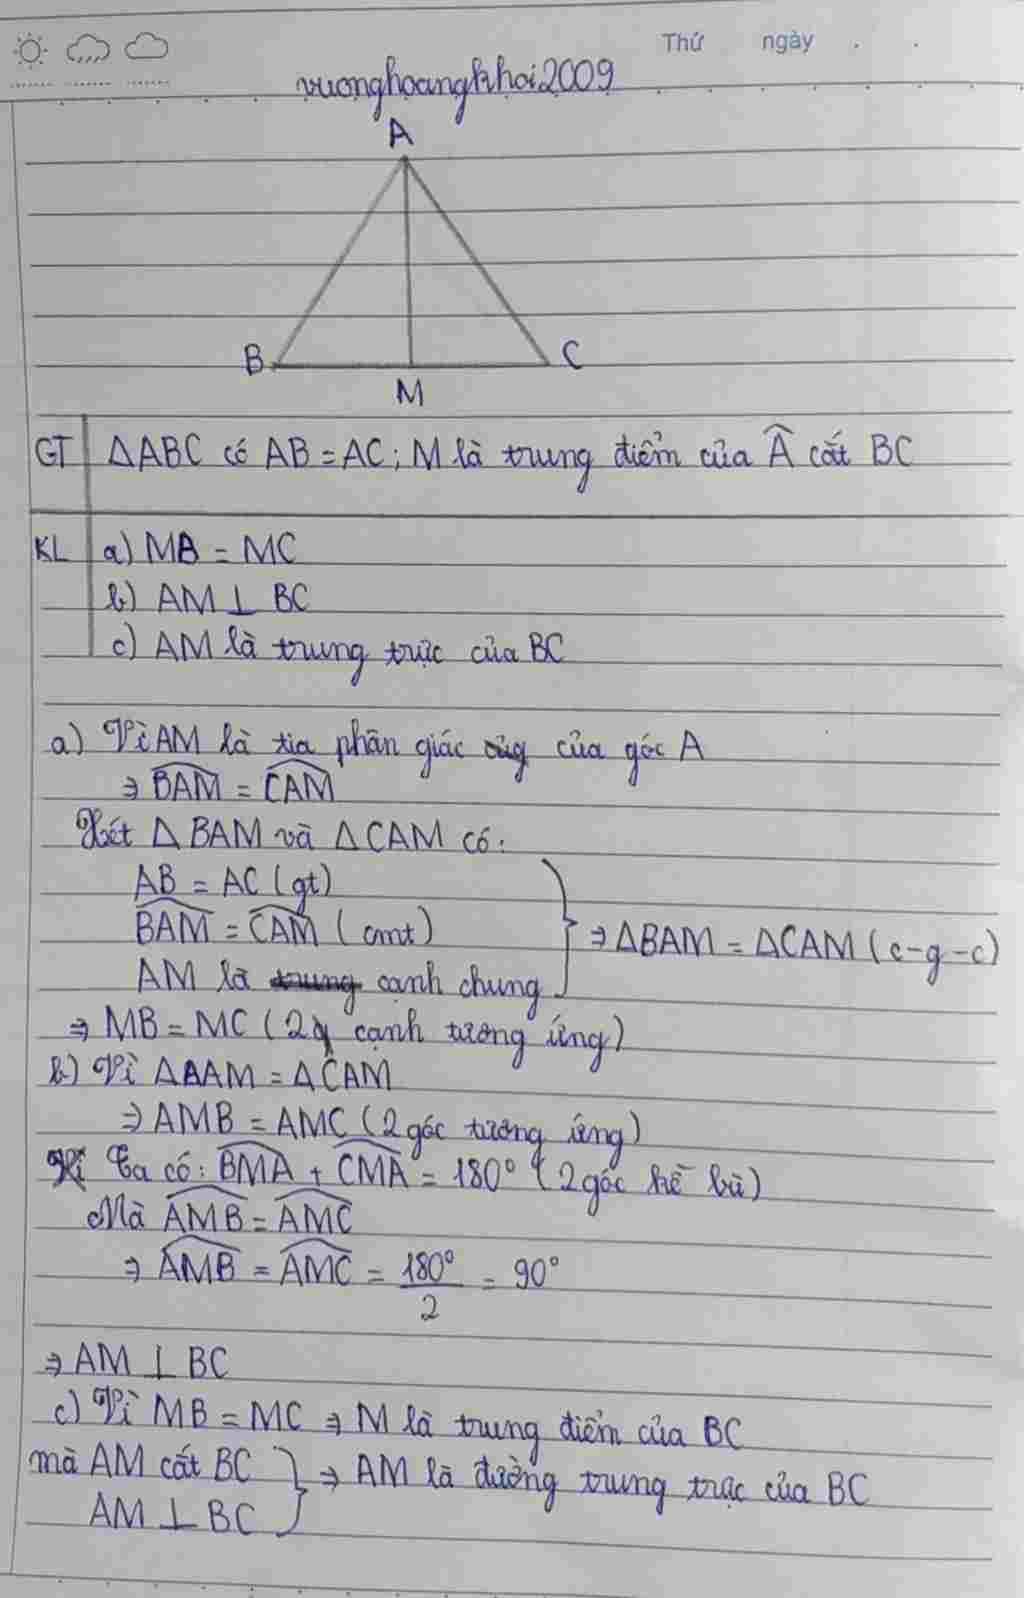 Thứ ngày . .
vuonghoangkhoi2009
A
B C
M
GT ΔABC có AB = AC; M là trung điểm của Â cắt BC
KL a) MB = MC
b) AM ⊥ BC
c) AM là trung trực của BC
a) Vì AM là tia phân giác của góc A
⇒ BAM = CAM
Xét Δ BAM và Δ CAM có:
AB = AC (gt)
BAM = CAM (cmt) ⇒ ΔBAM = ΔCAM (c-g-c)
AM là cạnh chung
⇒ MB = MC (2 cạnh tương ứng)
b) Vì ΔBAM = ΔCAM
⇒ AMB = AMC (2 góc tương ứng)
Ta có: BMA + CMA = 180° (2 góc kề bù)
Mà AMB = AMC
⇒ AMB = AMC = 180°/2 = 90°
⇒ AM ⊥ BC
c) Vì MB = MC ⇒ M là trung điểm của BC
mà AM cắt BC ⇒ AM là đường trung trực của BC
AM ⊥ BC